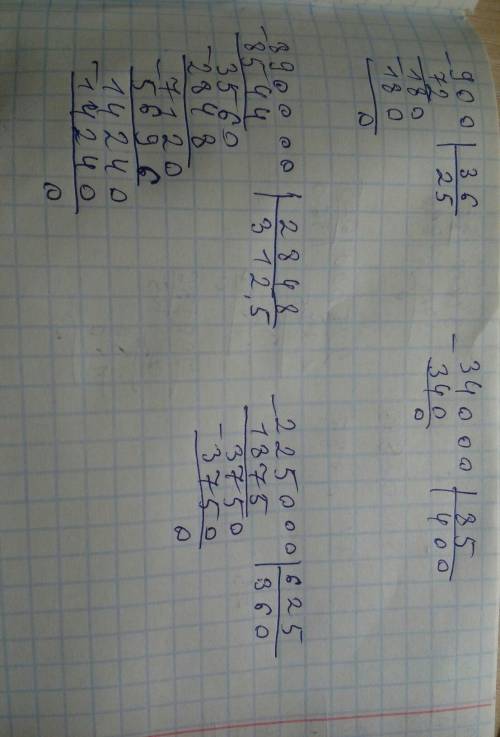 -900 | 36
72 | 25
-180
180
0
-34000 | 85
340 | 400
0
-890000 | 2848
8544 | 312,5
-3560
2848
-7120
5696
-14240
14240
0
-225000 | 625
1875 | 360
-3750
3750
0